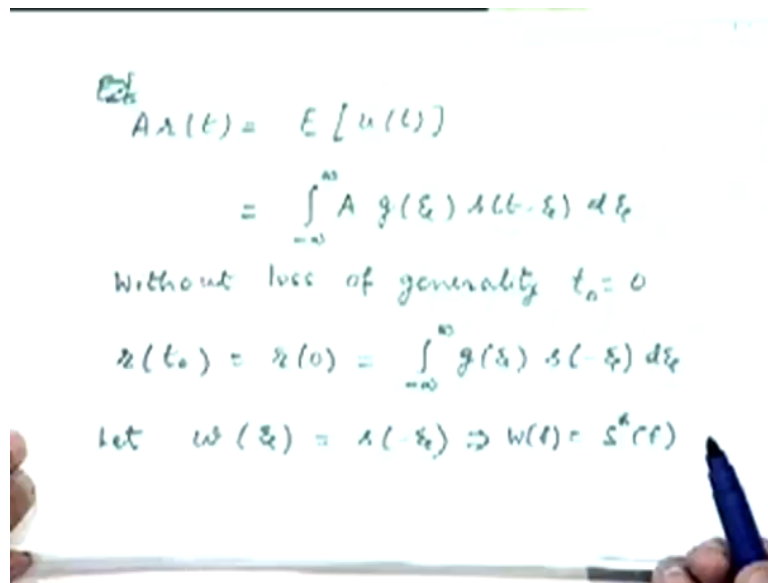 A r(t) = E[u(t)]
= ∫_{-∞}^{∞} A g(ξ) s(t-ξ) dξ
Without loss of generality t₀ = 0
r(t₀) = r(0) = ∫_{-∞}^{∞} g(ξ) s(-ξ) dξ
Let w(ξ) = s(-ξ) ⇒ W(f) = S*(f)